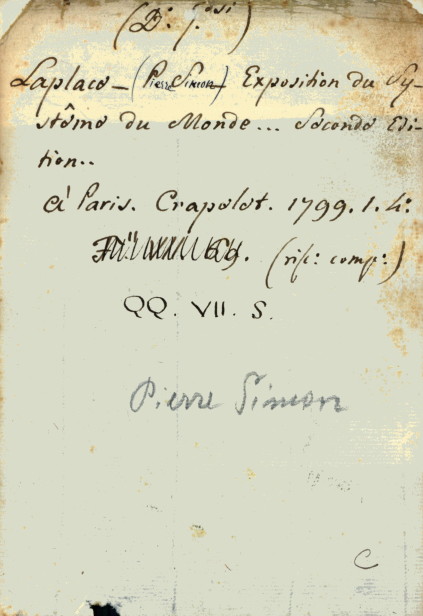 Laplace - (Pierre Simon - Exposition du Sy-
stême du Monde... Seconde Edi-
tion..
à Paris. Crapelet. 1799. 1. 4:
69. (rifc: comp:)
QQ. VII. S.
Pierre Simon
C